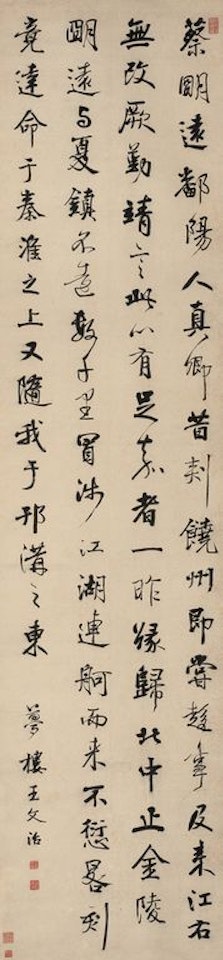 蔡明遠鄱陽人真卿昔刺饒州即嘗趍事及来江右
無改厥勤靖言此心有足嘉者一昨緣歸北中止金陵
明遠与夏鎮不遠數千里冒涉江湖連舸而来不愆晷刻
竟達命于秦淮之上又隨我于邗溝之東
夢樓王文治